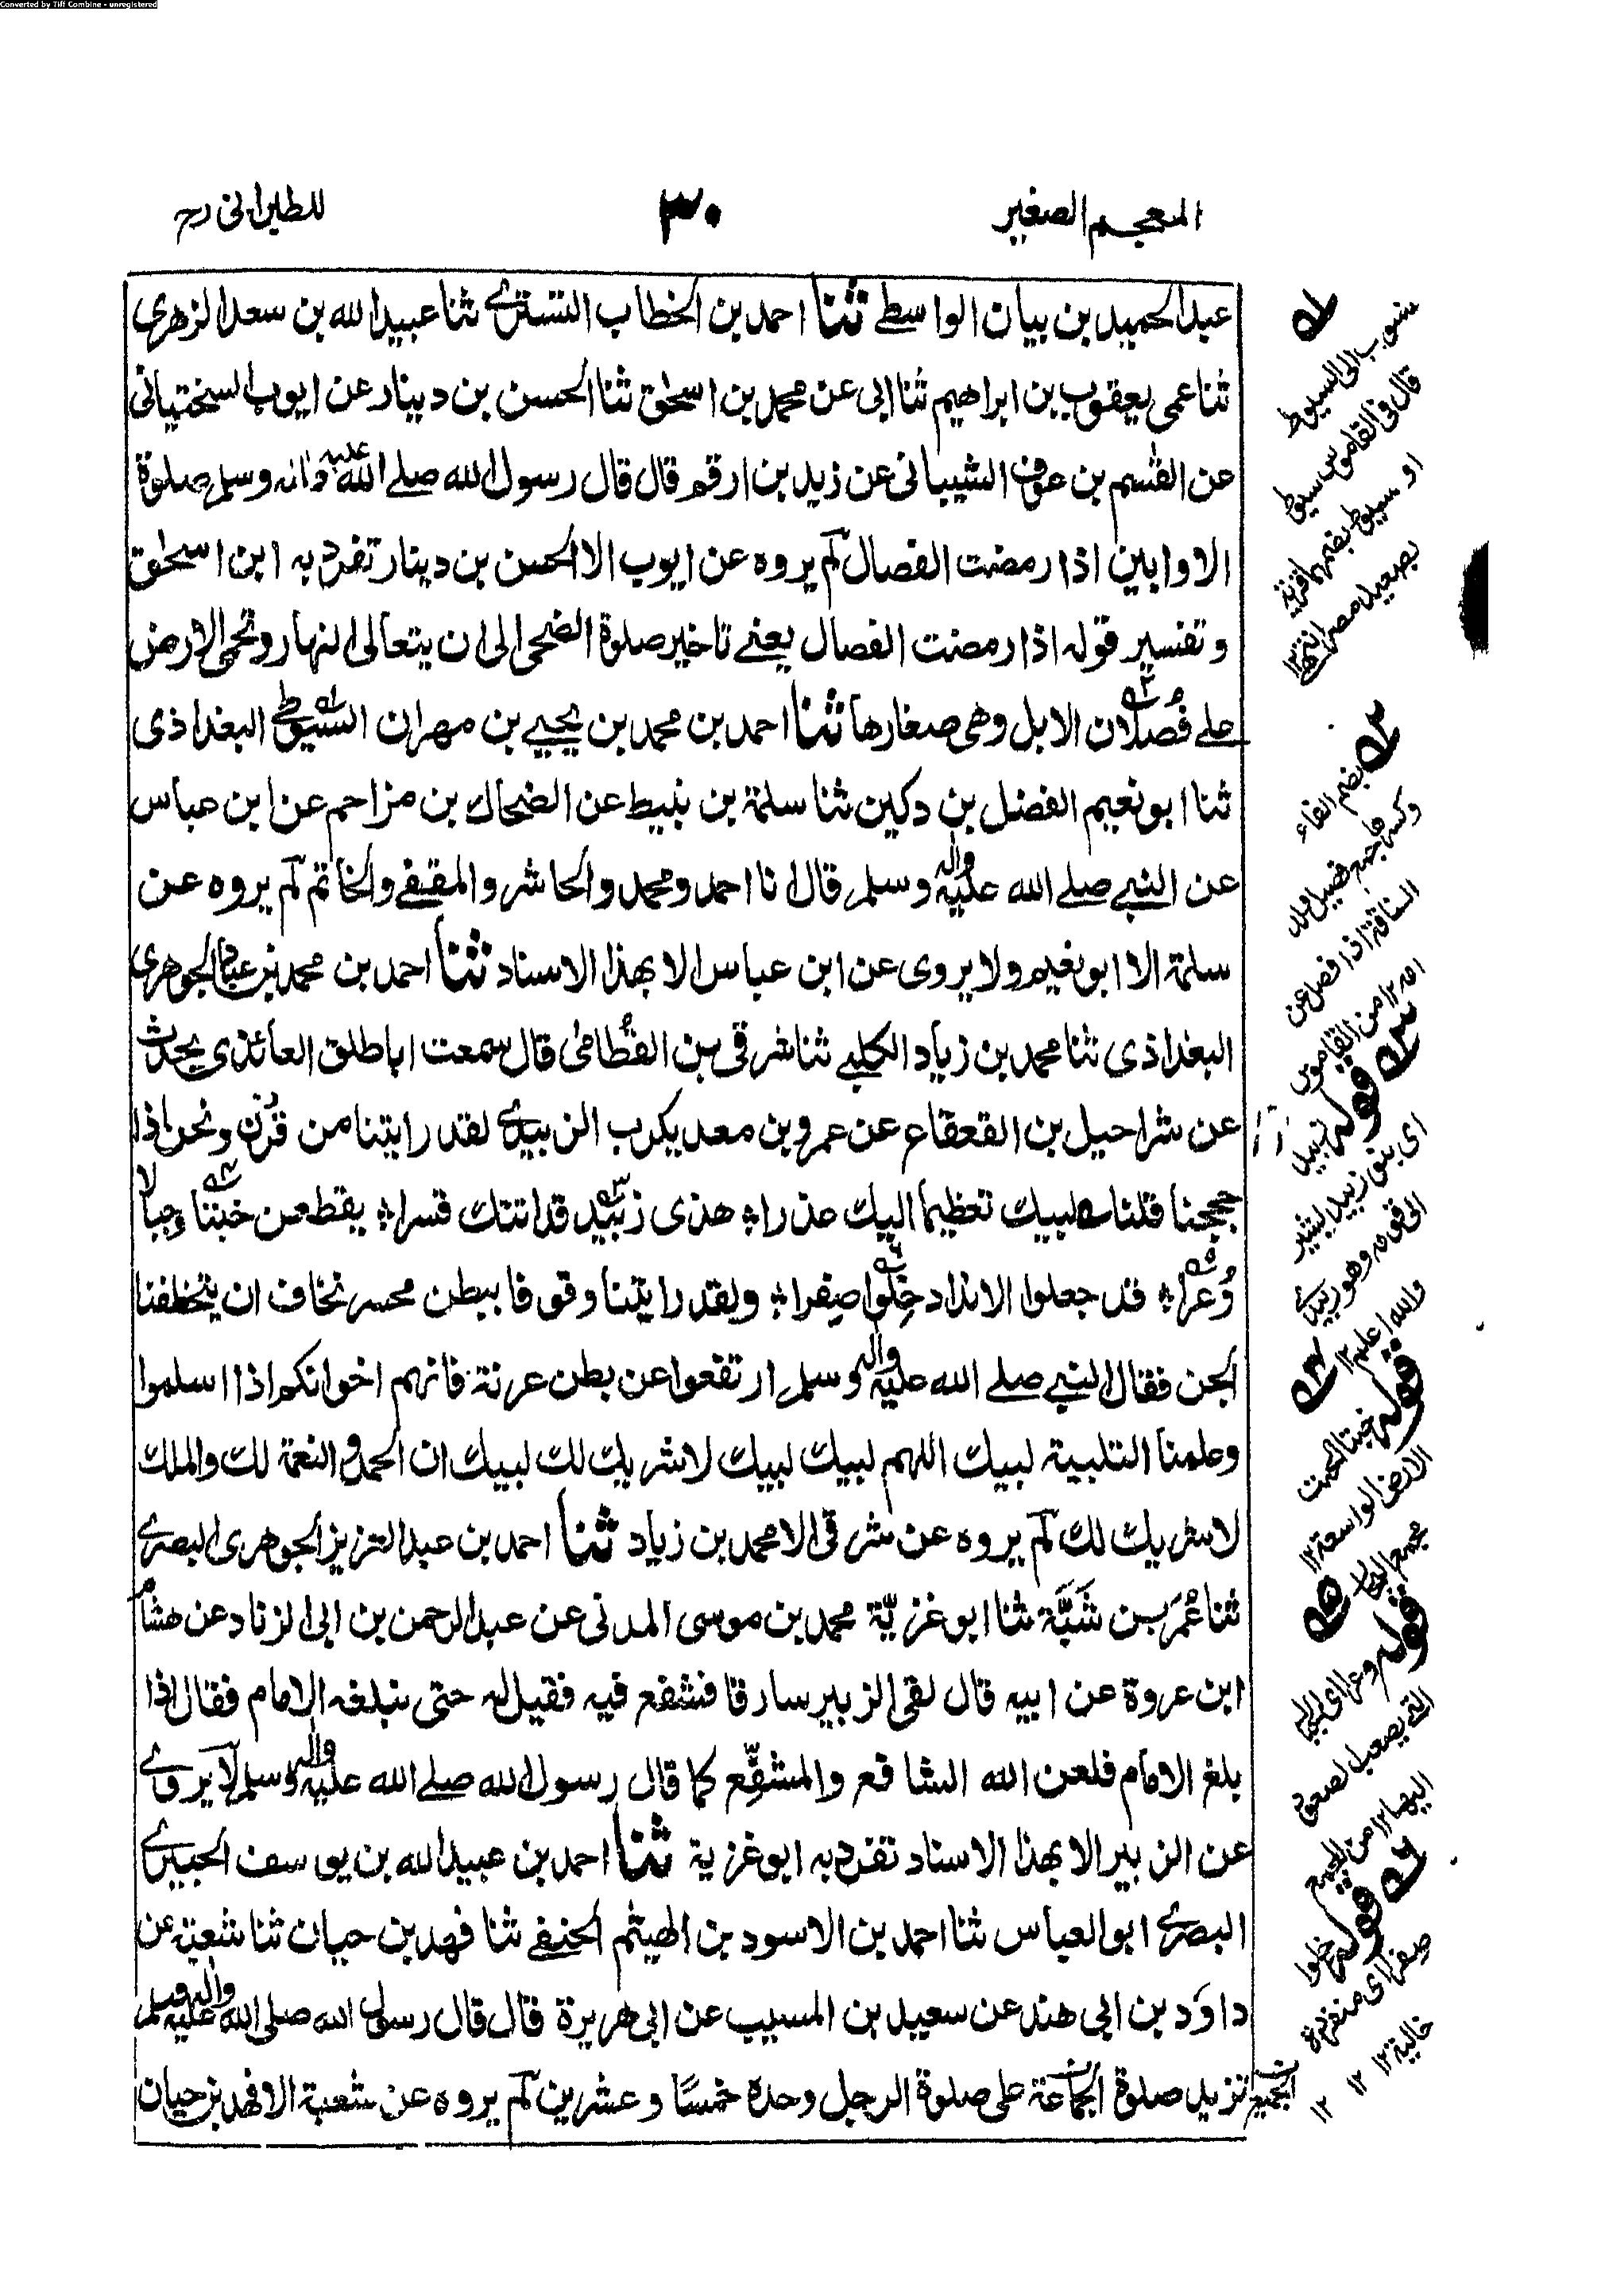 Converted by Tiff Combine - unregistered
المعجم الصغير
٣٠
للطبرانى رح
عبد الحميد بن بيان الواسطے ثنا احمد بن الخطاب التسترے ثنا عبيد الله بن سعد الزهرى
ثنا عمى يعقوب بن ابراهيم ثنا ابى عن محمد بن اسحٰق ثنا الحسن بن دينار عن ايوب السختيانى
عن القٰسم بن عوف الشيبانى عن زيد بن ارقم قال قال رسول الله صلے الله عليه واٰله وسلم صلوة
الاوابين اذا رمضت الفصال لم يروه عن ايوب الا الحسن بن دينار تفرد به ابن اسحٰق
وتفسير قوله اذا رمضت الفصال يعنے تاخير صلوة الضحى الى ان يتعالى النهار وتحمى الارض
علے فُصلان الابل وهى صغارها ثنا احمد بن محمد بن يحيے بن مهران السيوطے البغداذى
ثنا ابو نعيم الفضل بن دكين ثنا سلمة بن نبيط عن الضحاك بن مزاحم عن ابن عباس
عن النبے صلے الله عليه واٰله وسلم قال انا احمد ومحمد والحاشر والمقفے والخاتم لم يروه عن
سلمة الا ابو نعيم ولا يروى عن ابن عباس الا بهذا الاسناد ثنا احمد بن محمد بن عباد الجوهرى
البغداذى ثنا محمد بن زياد الكلبے ثنا شرقى بن القُطامى قال سمعت ابا طلق العائذى يحدث
عن شراحيل بن القعقاع عن عمرو بن معديكرب الزبيدے لقد رايتنا من قرن ونحن اذا
حججنا قلنا لبيك تعظيما اليك عذرا ؛ هذى زبيد قد اتتك قسرا ؛ يقطعن خبتا وجبالا
وُعرا ؛ قد جعلوا الانداد خِلوا صِفرا ؛ ولقد رايتنا وقوفا ببطن محسر نخاف ان يتخطفنا
الجن فقال النبے صلے الله عليه واٰله وسلم ارتفعوا عن بطن عرنة فانهم اخوانكم اذا اسلموا
وعلمنا التلبية لبيك اللهم لبيك لبيك لا شريك لك لبيك ان الحمد والنعمة لك والملك
لا شريك لك لم يروه عن شرقى الا محمد بن زياد ثنا احمد بن عبد العزيز الجوهرى البصرے
ثنا عُمَر بن شَبَّة ثنا ابو غزيّة محمد بن موسى المدنى عن عبد الرحمن بن ابى الزناد عن هشام
ابن عروة عن ابيه قال لقى الزبير سارقا فشفع فيه فقيل له حتى نبلغه الامام فقال اذا
بلغ الامام فلعن الله الشافع والمشفِّع كما قال رسول الله صلے الله عليه واٰله وسلم لا يروے
عن الزبير الا بهذا الاسناد تفرد به ابو غزية ثنا احمد بن عبيد الله بن يوسف الجبيرے
البصرے ابو العباس ثنا احمد بن الاسود بن الهيثم الحنفے ثنا فهد بن حيان ثنا شعبة عن
داود بن ابى هند عن سعيد بن المسيب عن ابى هريرة قال قال رسول الله صلى الله عليه واٰله وسلم
تزيد صلوة الجماعة على صلوة الرجل وحده خمسًا وعشرين لم يروه عن شعبة الا فهد بن حيان
الجميع
سه
منسوب الى السيوط
قال فى القاموس سيوط
او سيوط بضمهما قرية
بصعيد مصر انتهى ١٢
سه
بضم الفاء
وكسرها جمع فصيل ولد
الناقة اذا فصل عن
امه ١٢ من القاموس
سه قوله زبيد
اى بنو زبيد يشير
الى قومه وهو زبيدے
والله اعلم ١٢
سه
قوله خبتا الخبت
الارض الواسعة ١٢
مجمع البحار
سه
قوله وعرا اى الجبال
التے يصعب الصعود
اليها ١٢ من المجمع
سه قوله خلوا
صفرا اى منفردة
خالية ١٢ ١٢ ١٢